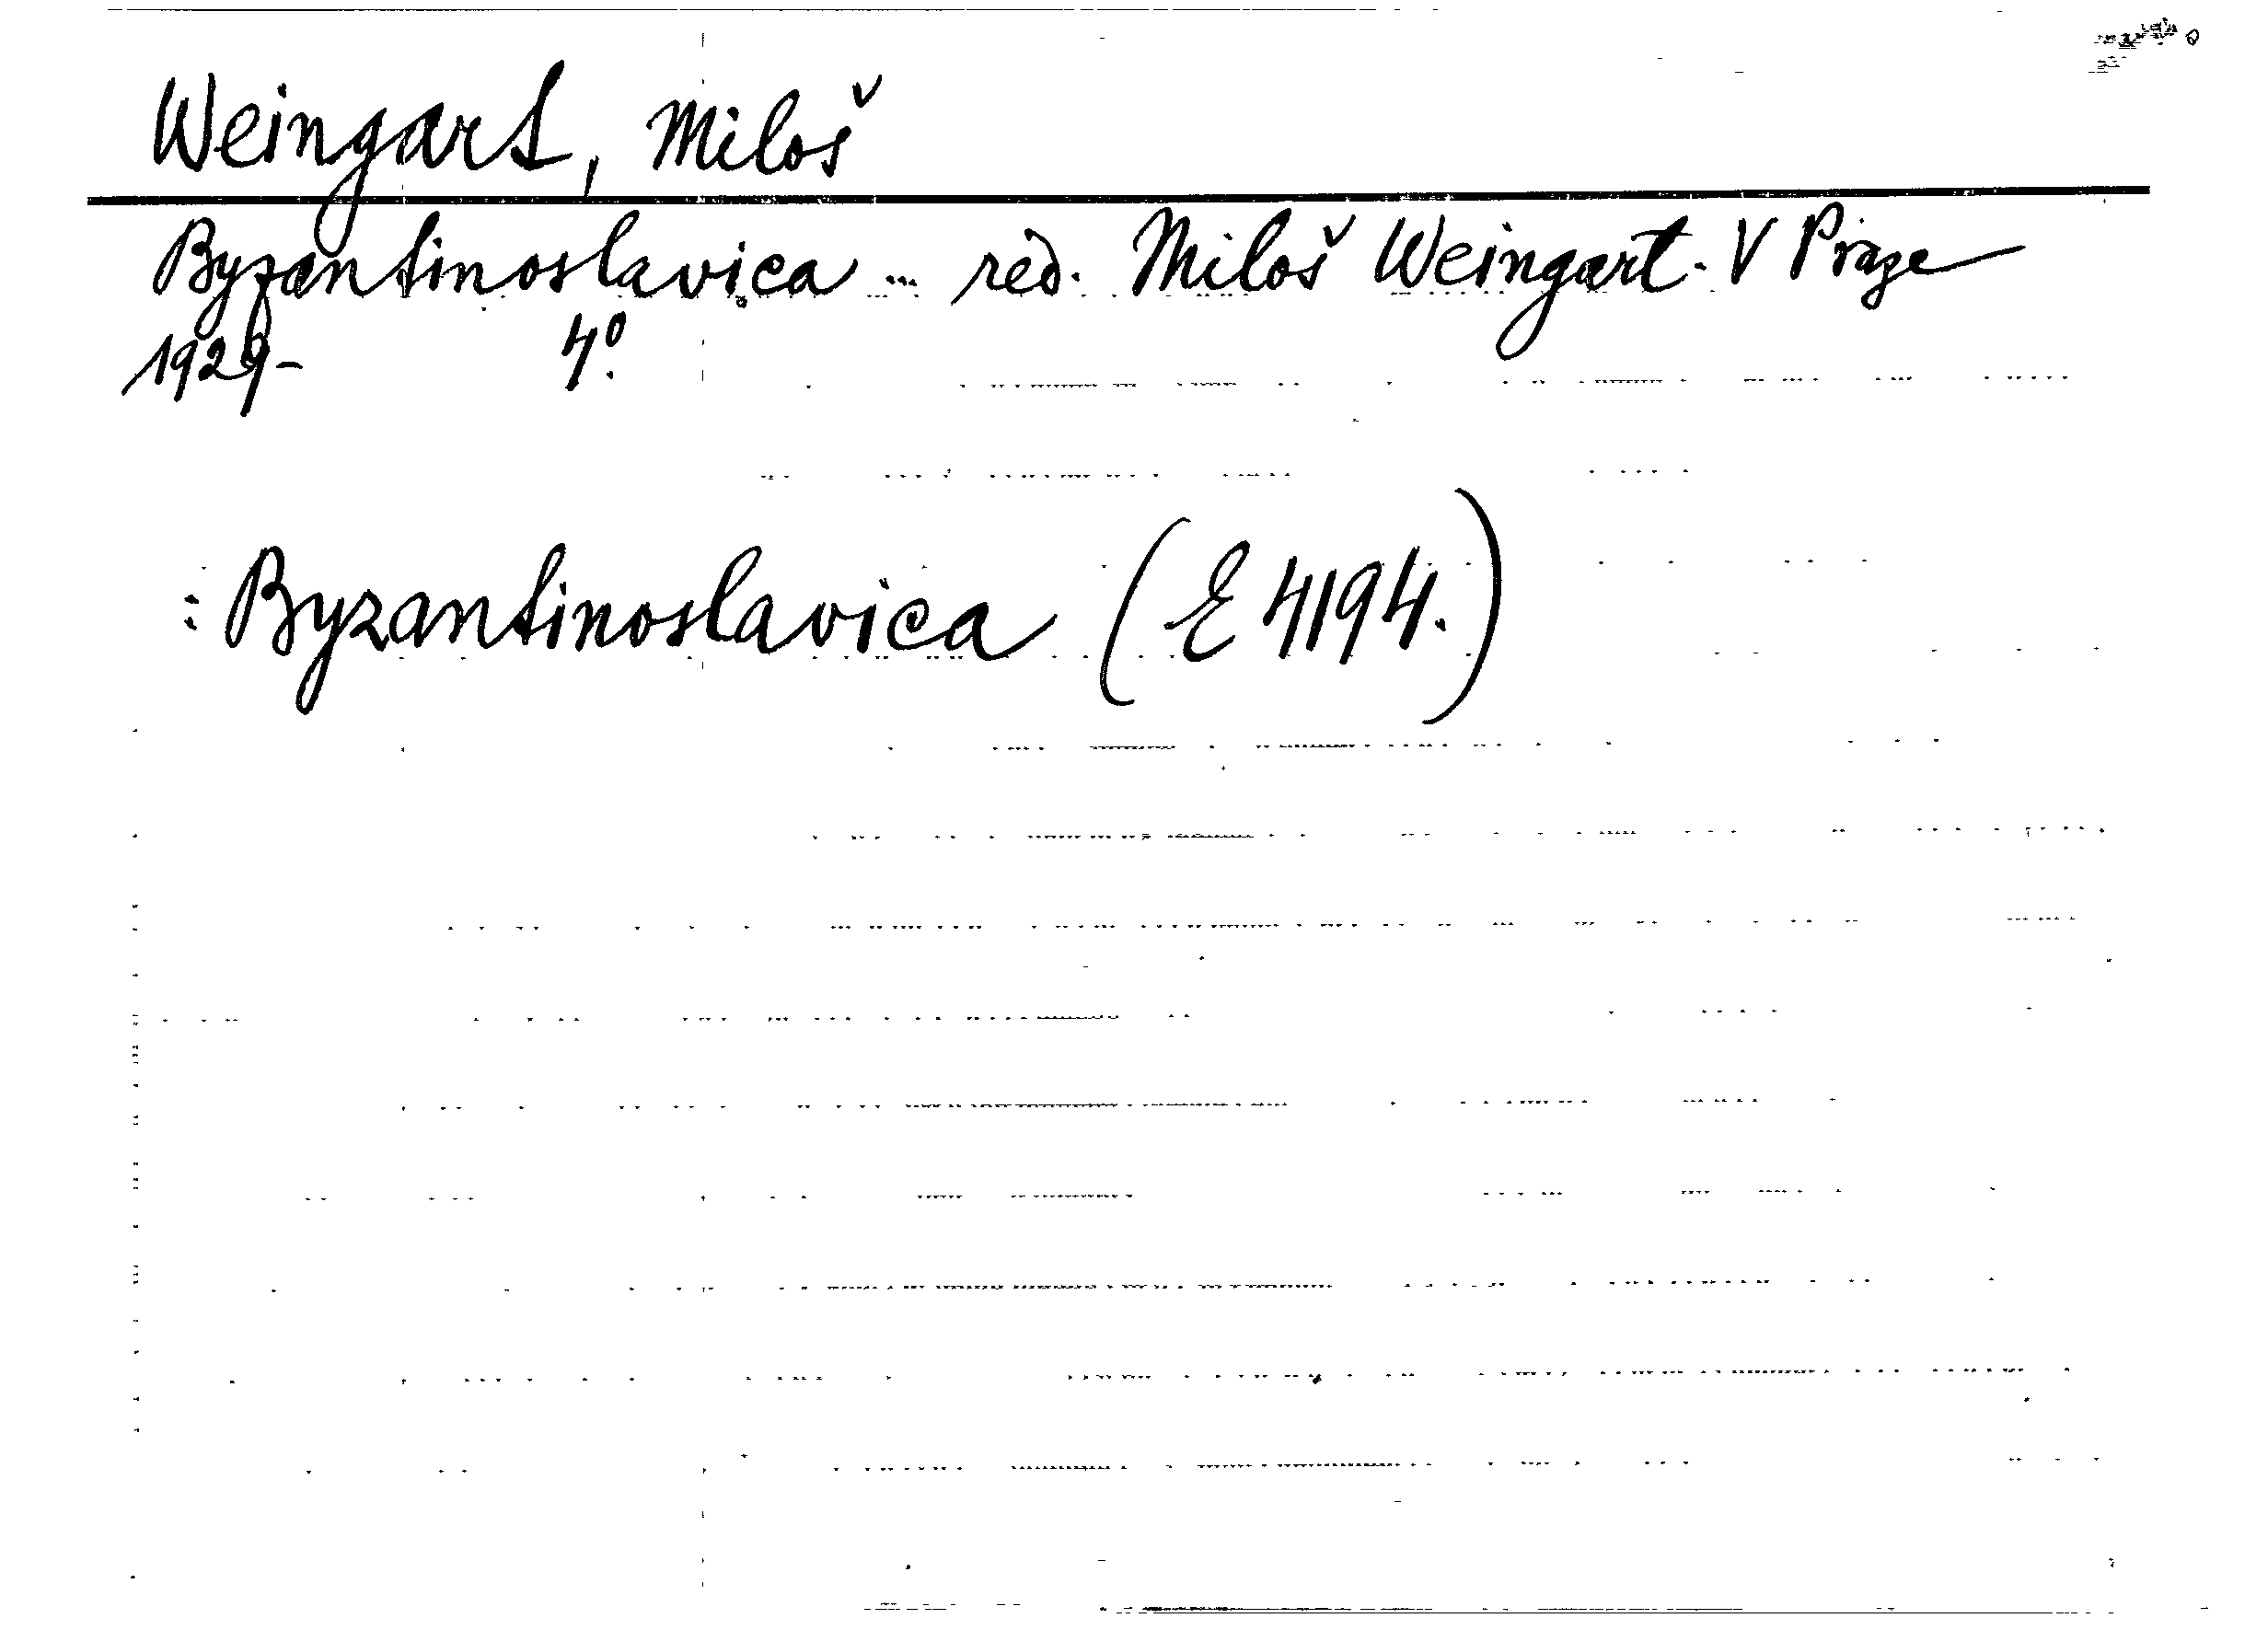 Weingart, Miloš
Byzantinoslavica ... red. Miloš Weingart. V Praze
1929- 4º.
: Byzantinoslavica (E 4194.)